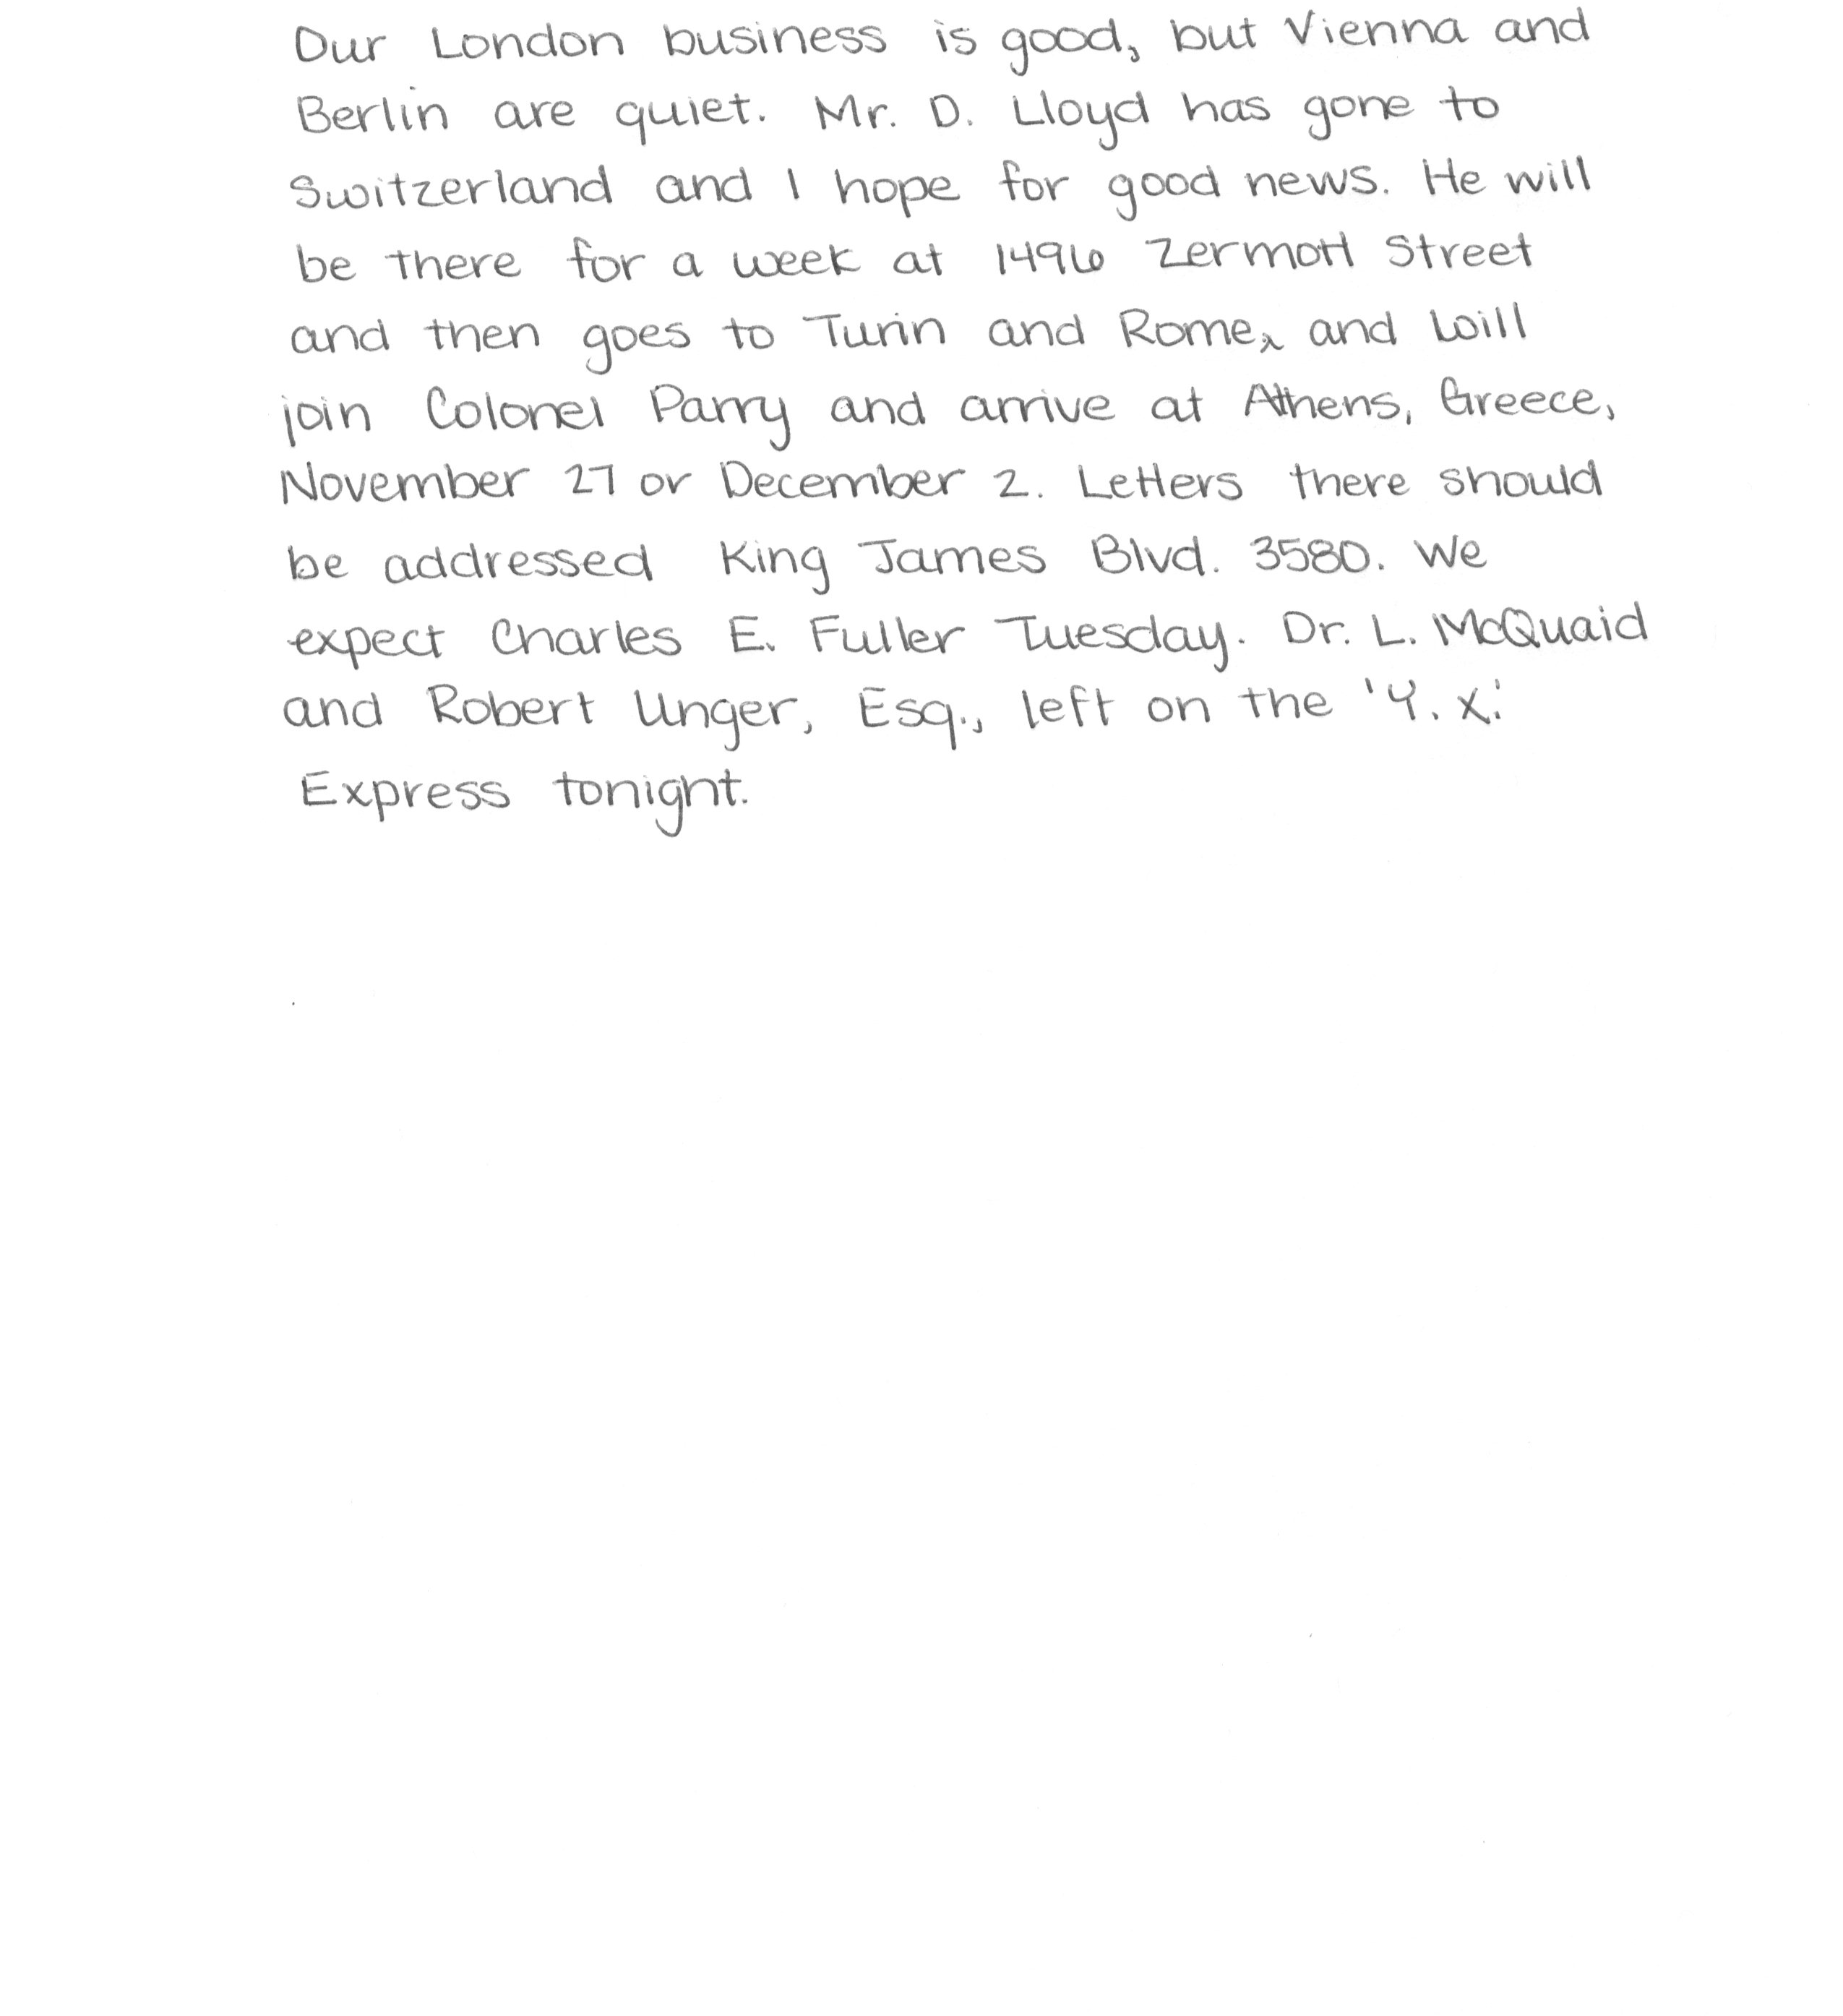 Our London business is good, but Vienna and
Berlin are quiet. Mr. D. Lloyd has gone to
Switzerland and I hope for good news. He will
be there for a week at 1496 Zermott Street
and then goes to Turin and Rome, and will
join Colonel Parry and arrive at Athens, Greece,
November 27 or December 2. Letters there should
be addressed King James Blvd. 3580. We
expect Charles E. Fuller Tuesday. Dr. L. McQuaid
and Robert Unger, Esq., left on the 'Y. X.'
Express tonight.